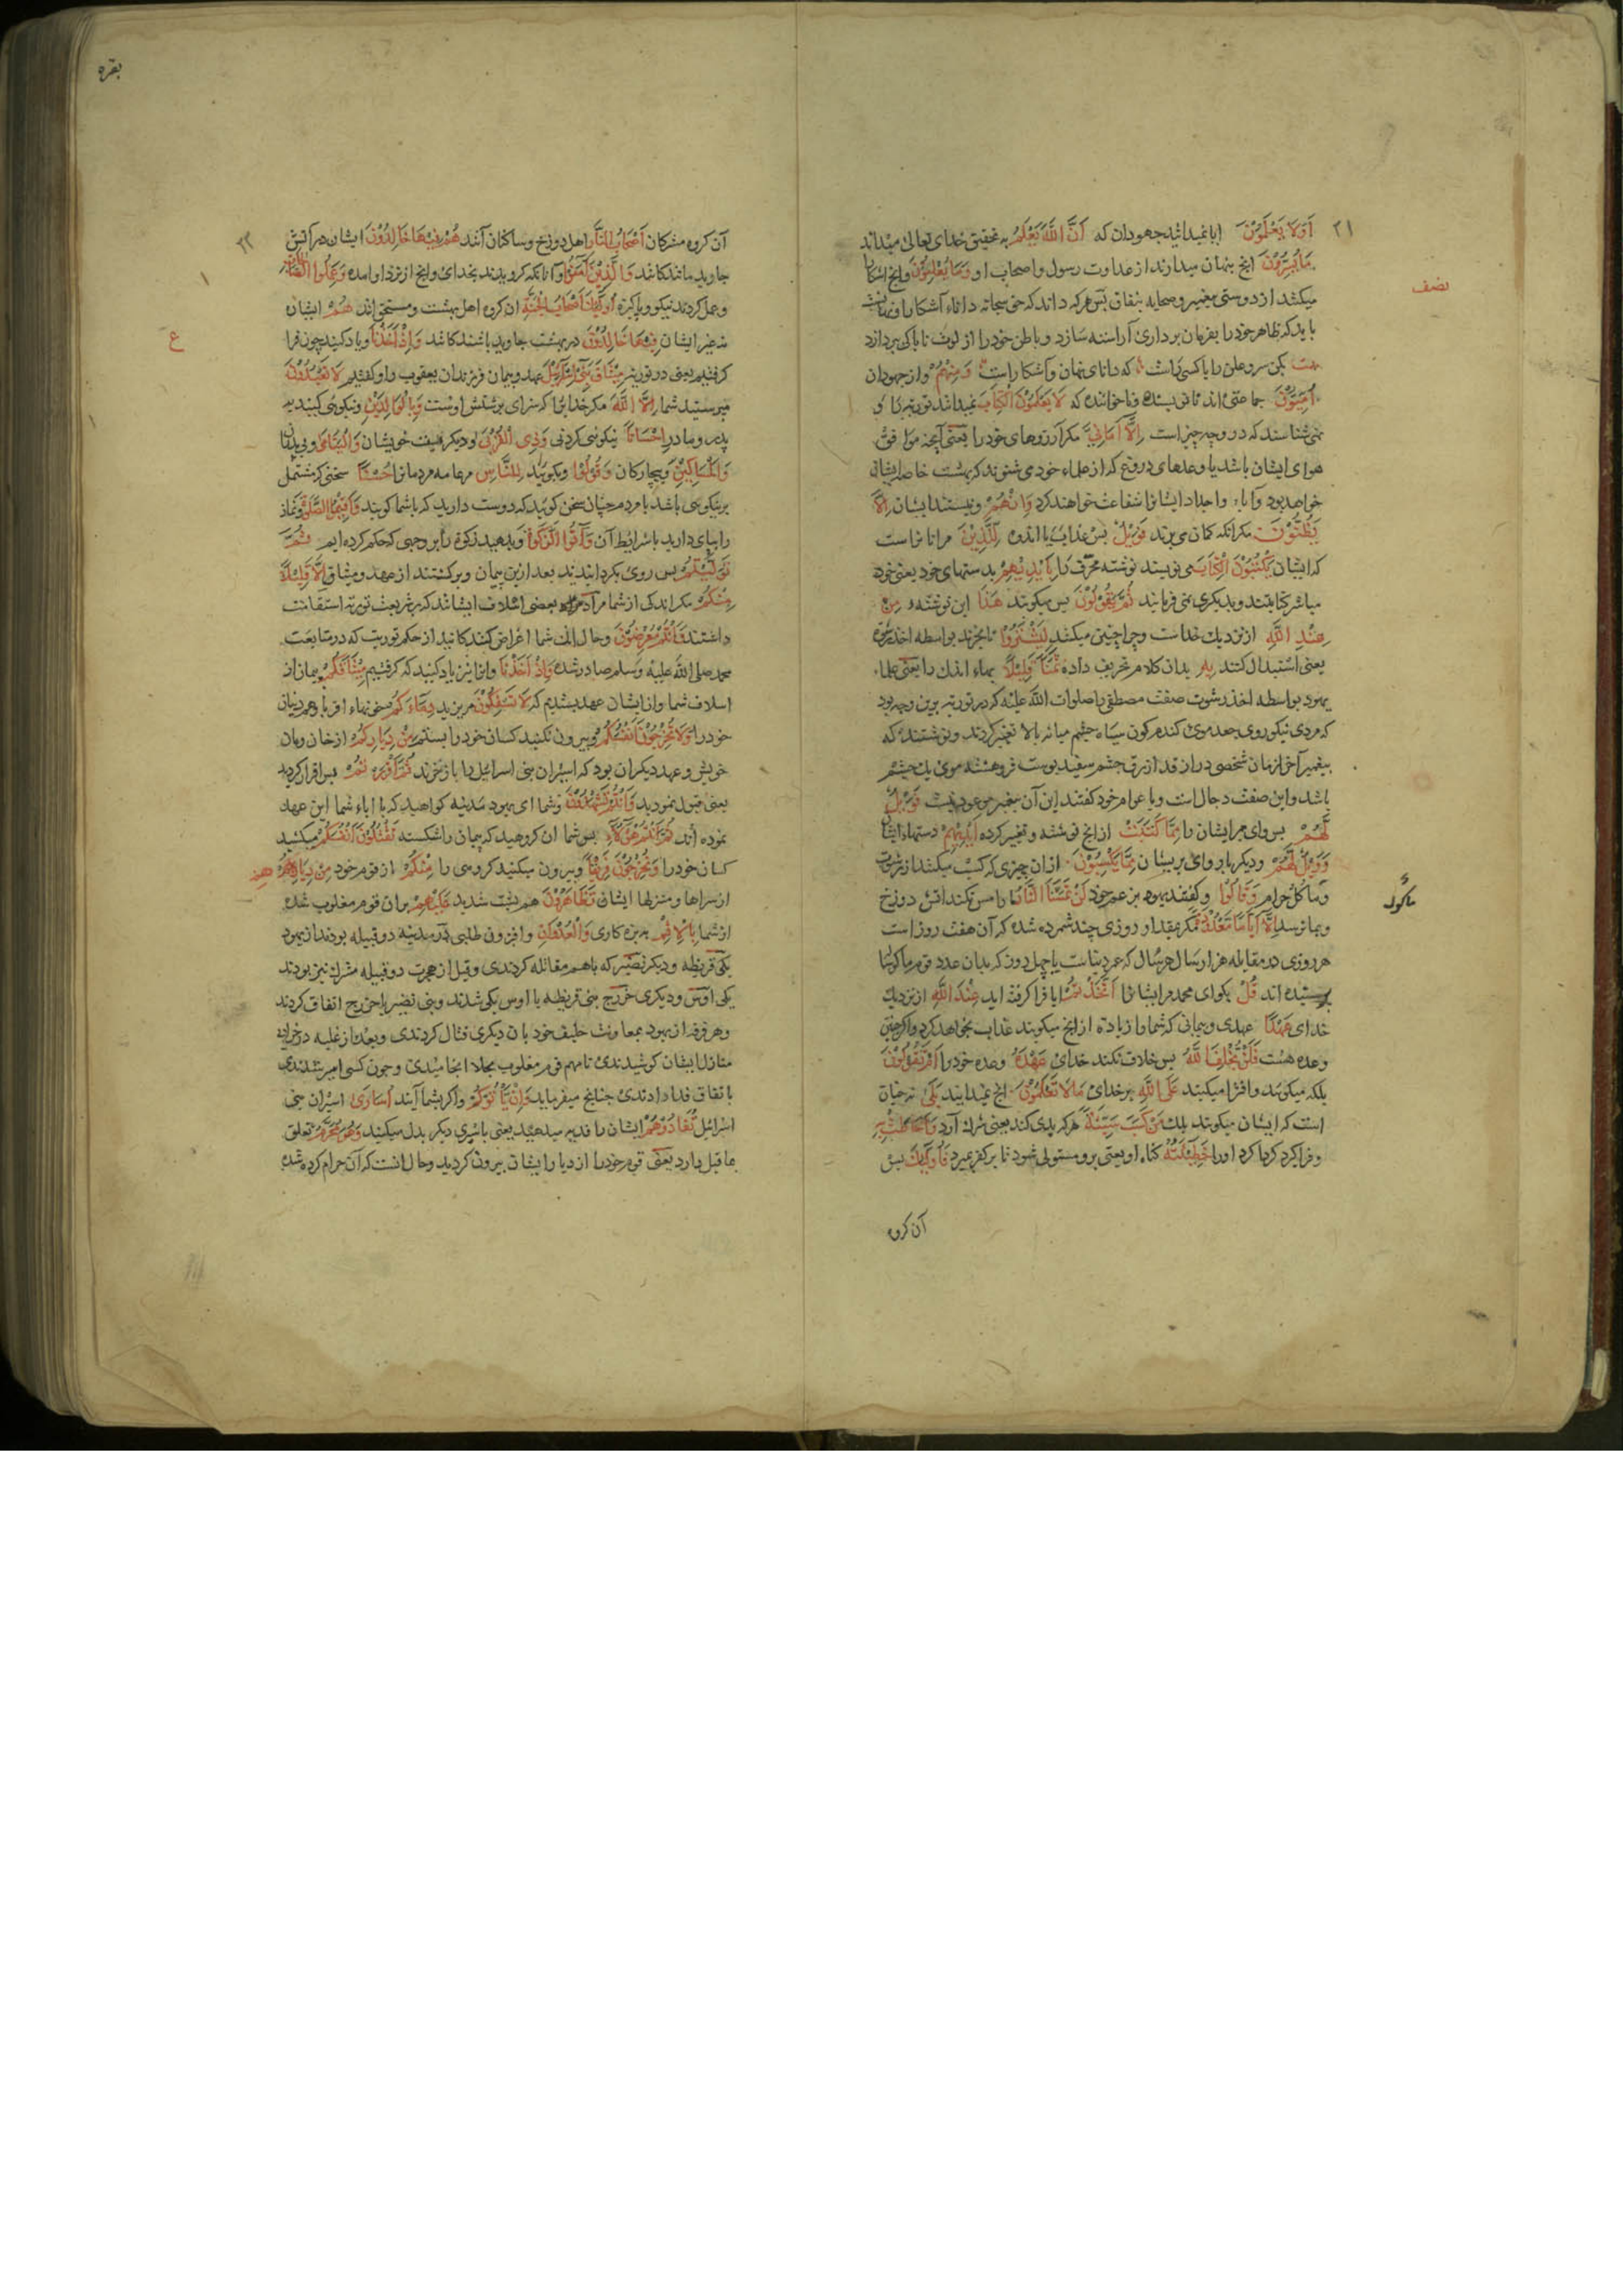 ۲۱
اَوَلَا يَعْلَمُوْنَ ایا نمیدانند جهودان که اَنَّ اللّٰهَ يَعْلَمُ به تحقیق خدای تعالی میداند
مَا يُسِرُّوْنَ انچ پنهان میدارند از عداوت رسول و اصحاب او وَمَا يُعْلِنُوْنَ و انچ اشکارا
میکنند از دوستی پیغمبر و صحابه بنفاق پس هر که داند که حق سبحانه داناء آشکارا و نهانست
باید که ظاهر خود را بفرمان برداری آراسته سازد و باطن خود را از لوث ناپاکی بپردازد
که دانای نهان و آشکارا است وَمِنْهُمْ و از جهودان
اُمِّيُّوْنَ جماعتی اند نانویسنده و ناخوانده که لَا يَعْلَمُوْنَ الْكِتَابَ نمیدانند توریة را و
نمی شناسند که درو چه چیز است اِلَّا اَمَانِيَّ مکر آرزوهای خود را یعنی آنچه موافق
هوای ایشان باشد یا وعدهای دروغ که از علماء خود می شنوند که بهشت خاصه ایشان
خواهد بود و آباء و اجداد ایشانرا شفاعت خواهند کرد وَاِنْ هُمْ و نیستند ایشان اِلَّا
يَظُنُّوْنَ مکر انکه کمان می برند فَوَيْلٌ پس عذاب یا اندوه لِلَّذِيْنَ مر انانراست
که ایشان يَكْتُبُوْنَ الْكِتَابَ می نویسند نوشته محرف را بِاَيْدِيْهِمْ بدستهای خود یعنی خود
مباشر کتابتند و بدیکری نمی فرمایند ثُمَّ يَقُوْلُوْنَ پس میکویند هٰذَا این نوشته مِنْ
عِنْدِ اللّٰهِ از نزدیک خداست و چرا چنین میکنند لِيَشْتَرُوْا تا بخرند بواسطه اخذ رشوة
یعنی استبدال کنند بِهٖ بدان کلام تحریف داده ثَمَنًا قَلِيْلًا بهاء اندک را یعنی علماء
یهود بواسطه اخذ رشوت صفت مصطفی را صلوات الله علیه که در توریة برین وجه بود
که مردی نیکو روی جعد موی کندم کون سیاه چشم میانه بالا تغییر کردند و نوشتند که
پیغمبر آخر زمان شخصی دراز قد ازرق چشم سفید پوست فروهشته موی یک چشم
باشد و این صفت دجال است و با عوام خود کفتند این آن پیغمبر موعود نیست فَوَيْلٌ
لَهُمْ پس وای مر ایشان را مِمَّا كَتَبَتْ از انچ نوشته و تغییر کرده اَيْدِيْهِمْ دستهاء ایشان
وَوَيْلٌ لَهُمْ و دیکر بار وای بریشان مِمَّا يَكْسِبُوْنَ از ان چیزی که کسب میکنند از رشوت
و مأکل حرام وَقَالُوْا و کفتند یهود بزعم خود لَنْ تَمَسَّنَا النَّارُ ما را مس نکند اتش دوزخ
و بما نرسد اِلَّا اَيَّامًا مَعْدُوْدَةً مکر بمقدار روزی چند شمرده شده که آن هفت روز است
هر روزی در مقابله هزار سال هر سال که عمر دنیاست یا چهل روز که بدان عدد قوم ما کوساله
پرستیده اند قُلْ بکو ای محمد مر ایشانرا اَتَّخَذْتُمْ ایا فرا کرفته اید عِنْدَ اللّٰهِ از نزدیک
خدای عَهْدًا عهدی و پیمانی که شما را زیاده از انچ میکویند عذاب نخواهد کرد و اکر چنین
وعده هست فَلَنْ يُخْلِفَ اللّٰهُ پس خلاف نکند خدای عَهْدَهٗ وعده خود را اَمْ تَقُوْلُوْنَ
بلکه میکویند و افترا میکنید عَلَى اللّٰهِ بر خدای مَا لَا تَعْلَمُوْنَ انچ نمیدانید بَلٰى نه چنان
است که ایشان میکویند بلکه مَنْ كَسَبَ سَيِّئَةً هر که بدی کند یعنی شرک آرد وَاَحَاطَتْ بِهٖ
و فرا کیرد کرداکرد او را خَطِيْٓئَتُهٗ کناه او یعنی برو مستولی شود تا بر کفر بمیرد فَاُولٰٓئِكَ پس
آن کروه
نصف
بقره
۲۲
آن کروه مشرکان اَصْحَابُ النَّارِ اهل دوزخ و ساکنان آنند هُمْ فِيْهَا خَالِدُوْنَ ایشان در آتش
جاوید مانندکانند وَالَّذِيْنَ اٰمَنُوْا و آنانکه کرویدند بخدای و انچ از نزد او امده وَعَمِلُوا الصَّالِحَاتِ
و عمل کردند نیکو و پاکیزه اُولٰٓئِكَ اَصْحَابُ الْجَنَّةِ ان کروه اهل بهشت و مستحق انند هُمْ ایشان
نه غیر ایشان فِيْهَا خَالِدُوْنَ در بهشت جاوید باشندکانند وَاِذْ اَخَذْنَا و یاد کنید چون فرا
کرفتیم یعنی در توریة مِيْثَاقَ بَنِيْ اِسْرَائِيْلَ عهد و پیمان فرزندان یعقوب را و کفتیم لَا تَعْبُدُوْنَ
مپرستید شما اِلَّا اللّٰهَ مکر خدایرا که سزای پرستش اوست وَبِالْوَالِدَيْنِ و نیکوی کنید به
پدر و مادر اِحْسَانًا نیکوئی کردنی وَذِى الْقُرْبٰى و دیکر نسبت خویشان وَالْيَتَامٰى و بی پدران
وَالْمَسَاكِيْنِ و بیچارکان وَقُوْلُوْا و بکویید لِلنَّاسِ مر عامه مردمانرا حُسْنًا سخنی که مشتمل
بر نیکوی باشد با مردم چنان سخن کویید که دوست دارید که با شما کویند وَاَقِيْمُوا الصَّلٰوةَ و نماز
را بپای دارید با شرایط آن وَاٰتُوا الزَّكٰوةَ و بدهید زکوة را بر وجهی که حکم کرده ایم ثُمَّ
تَوَلَّيْتُمْ پس روی بکردانیدند بعد ازین پیمان و برکشتند از عهد و میثاق اِلَّا قَلِيْلًا
مِنْكُمْ مکر اندکی از شما مراد بعضی اسلاف ایشانند که بر شریعت توریة استقامت
داشتند وَاَنْتُمْ مُعْرِضُوْنَ و حال انک شما اعراض کنندکانید از حکم توریت که در متابعت
محمد صلی الله علیه وسلم صادر شده وَاِذْ اَخَذْنَا و انرا نیز یاد کنید که کرفتیم مِيْثَاقَكُمْ پیمان از
اسلاف شما و از ایشان عهد بستدیم که لَا تَسْفِكُوْنَ مریزید دِمَاءَكُمْ خونهاء اقربا و هم دینان
خود را وَلَا تُخْرِجُوْنَ اَنْفُسَكُمْ و بیرون نکنید کسان خود را بستم مِنْ دِيَارِكُمْ از خان و مان
خویش و عهد دیکر ان بود که اسیران بنی اسرائیل را باز خرند ثُمَّ اَقْرَرْتُمْ پس اقرار کردید
یعنی قبول نمودید وَاَنْتُمْ تَشْهَدُوْنَ و شما ای یهود مدینه کواهید که با اباء شما این عهد
نموده اند ثُمَّ اَنْتُمْ هٰٓؤُلَاءِ پس شما ان کروهید که پیمان را شکسته تَقْتُلُوْنَ اَنْفُسَكُمْ میکشید
کسان خود را وَتُخْرِجُوْنَ فَرِيْقًا و بیرون میکنید کروهی را مِنْكُمْ از قوم خود مِنْ دِيَارِهِمْ
از سراها و منزلها ایشان تَظَاهَرُوْنَ هم پشت شدید عَلَيْهِمْ بران قوم مغلوب شده
از شما بِالْاِثْمِ به بزه کاری وَالْعُدْوَانِ و افزون طلبی در مدینه دو قبیله بودند از یهود
یکی قریظه و دیکر نضیر که باهم مقاتله کردندی و قبل از هجرت دو قبیله مشرک نیز بودند
یکی اوس و دیکری خزرج بنی قریظه با اوس یکی شدند و بنی نضیر با خزرج اتفاق کردند
و هر فرقه از یهود بمعاونت حلیف خود با ن دیکری قتال کردندی و بعد از غلبه در خرابی
منازل ایشان کوشیدندی تا مهم قوم مغلوب بجلا انجامیدی و چون کسی اسیر شدندی
باتفاق فدا دادندی چنانچ میفرماید وَاِنْ يَأْتُوْكُمْ و اکر بشما آیند اُسَارٰى اسیران بنی
اسرائیل تُفَادُوْهُمْ ایشان را فدیه میدهید یعنی باسیری دیکر بدل میکنید وَهُوَ مُحَرَّمٌ تعلق
بما قبل دارد یعنی قوم خود را از دیار ایشان بیرون کردید و حال انست که آن حرام کرده شده
ع